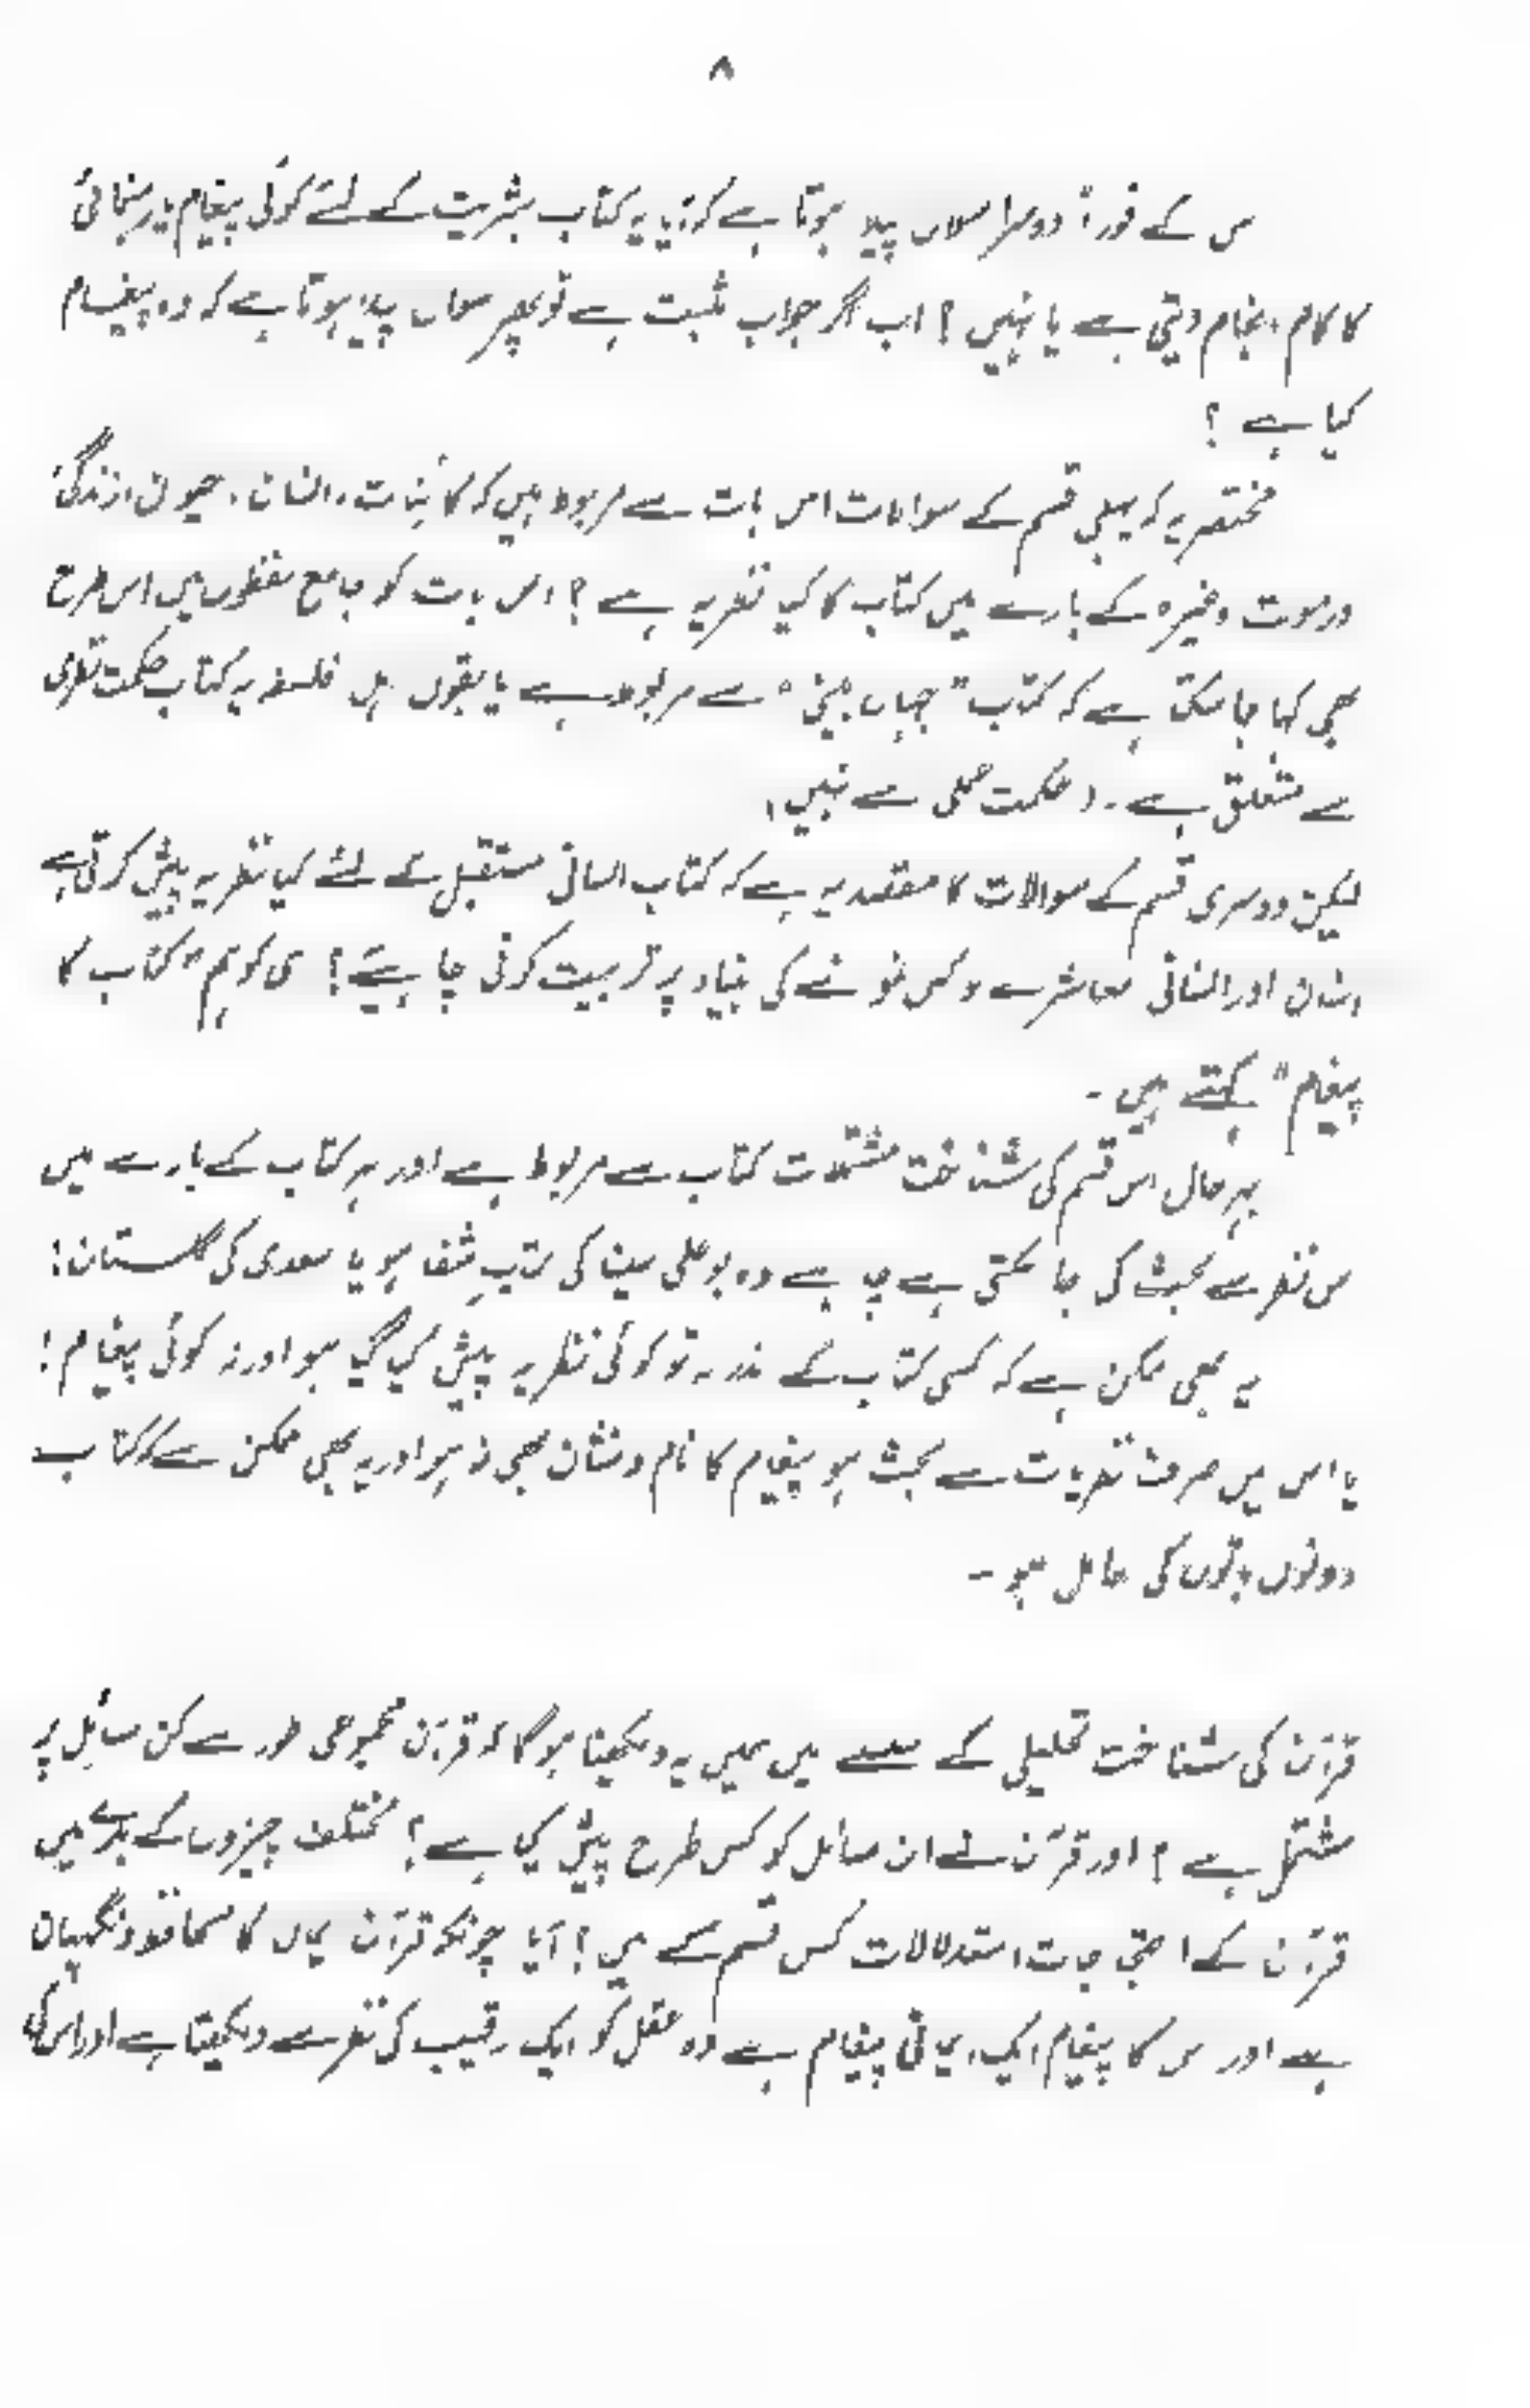 ۸
اس کے فوراً دوسرا سوال پیدا ہوتا ہے کہ آیا یہ کتاب بشریت کے لئے کوئی پیغام یا رہنمائی
کا کام انجام دیتی ہے یا نہیں ؟ اب اگر جواب مثبت ہے تو پھر سوال پیدا ہوتا ہے کہ وہ پیغام
کیا ہے ؟
مختصر یہ کہ پہلی قسم کے سوالات اس بات سے مربوط ہیں کہ کائنات ، انسان ، حیوان ، زندگی
اور موت وغیرہ کے بارے میں کتاب کا کیا نظریہ ہے ؟ اس بات کو جامع لفظوں میں اس طرح
بھی کہا جا سکتا ہے کہ کتاب " جہاں بینی " سے مربوط ہے یا بقول اہل فلسفہ یہ کتاب حکمت نظری
سے متعلق ہے ۔ ( حکمت عملی سے نہیں )
لیکن دوسری قسم کے سوالات کا مقصد یہ ہے کہ کتاب انسانی مستقبل کے لئے کیا نظریہ پیش کرتی ہے
انسان اور انسانی معاشرے کو کس نمونے کی بنیاد پر تربیت کرنی چاہیئے ؟ اسی کو ہم " کتاب کا
پیغام " کہتے ہیں ۔
بہرحال اس قسم کی شناخت مشتملات کتاب سے مربوط ہے اور ہر کتاب کے بارے میں
اس نظر سے بحث کی جا سکتی ہے چاہے وہ بو علی سینا کی کتاب شفا ہو یا سعدی کی گلستان !
یہ بھی ممکن ہے کہ کسی کتاب کے اندر نہ تو کوئی نظریہ پیش کیا گیا ہو اور نہ کوئی پیغام !
یا اس میں صرف نظریات سے بحث ہو پیغام کا نام و نشان بھی نہ ہو اور یہ بھی ممکن ہے کہ کتاب
دونوں باتوں کی حامل ہو ۔
قرآن کی شناخت تحلیلی کے سلسلے میں ہمیں یہ دیکھنا ہوگا کہ قرآن مجموعی طور سے کن مسائل پر
مشتمل ہے ؟ اور قرآن نے ان مسائل کو کس طرح پیش کیا ہے ؟ مختلف چیزوں کے بارے میں
قرآن کے احتجاجات ، استدلالات کس قسم کے ہیں ؟ آیا چونکہ قرآن ایمان کا محافظ و نگہبان
ہے اور اس کا پیغام ایک ایمانی پیغام ہے وہ عقل کو ایک رقیب کی نظر سے دیکھتا ہے اور اس کی